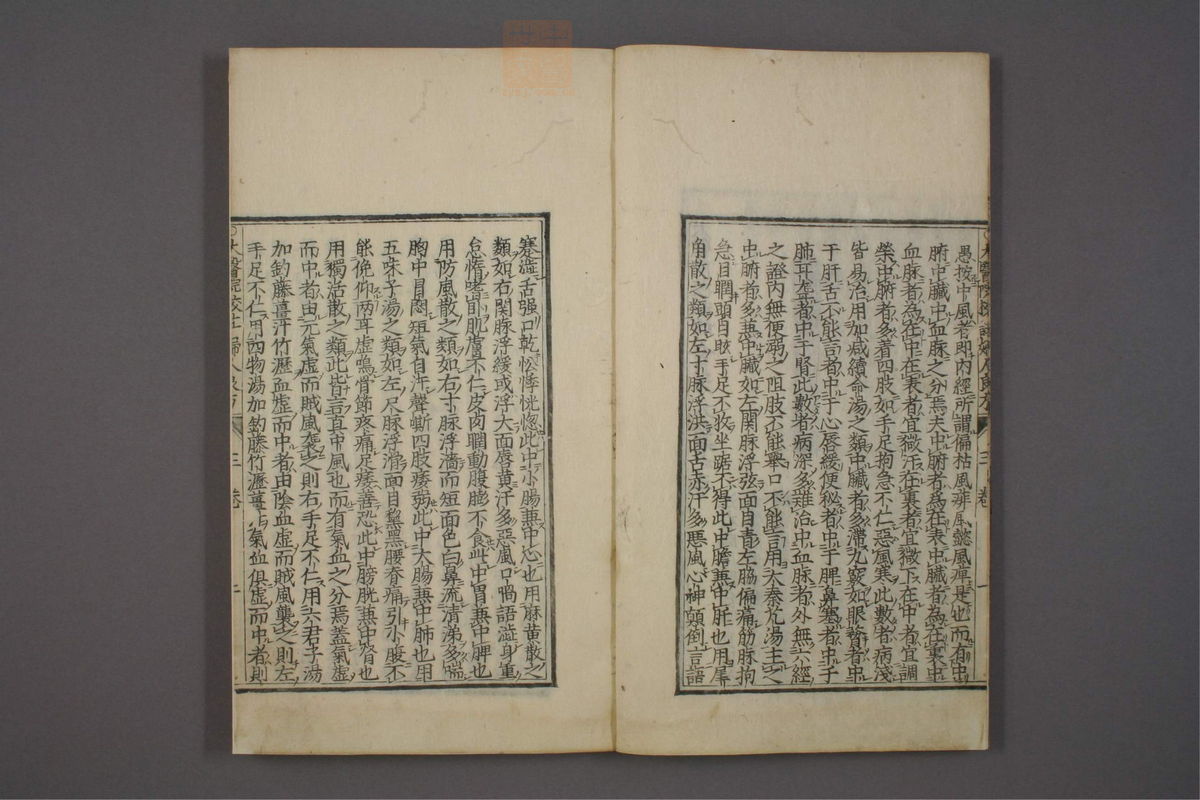 愚按中風者即内經所謂偏枯風痱風懿風痺是也而有中
腑中臟中血脉之分焉夫中腑者爲在表中臟者爲在裏中
血脉者爲在中在表者宜微汗在裏者宜微下在中者宜調
榮中腑者多着四肢如手足拘急不仁惡風寒此數者病淺
皆易治用加减續命湯之類中臟者多滯九竅如眼瞀者中
于肝舌不能言者中于心唇緩便秘者中于脾鼻塞者中于
肺耳聾者中于腎此數者病深多難治中血脉者外無六經
之證内無便溺之阻肢不能舉口不能言用大秦艽湯主之
虫腑者多兼中臟如左關脉浮弦面目青左脇偏痛筋脉拘
急目瞤頭目眩手足不收坐踞不得此中膽兼中肝也用犀
角散之類如左寸脉浮洪面舌赤汗多惡風心神顛倒言語
太醫院校 婦人良方 三卷 一
蹇澁舌强口乾忪悸恍惚此中小腸兼中心也用麻黄散之
類如右關脉浮緩或浮大面唇黄汗多惡風口喎語澁身重
怠惰嗜卧肌膚不仁皮肉瞤動腹膨不食此中胃兼中脾也
用防風散之類如右寸脉浮濇而短面色白鼻流清涕多喘
胸中冒悶短氣自汗聲嘶四肢痿弱此中大腸兼中肺也用
五味子湯之類如左尺脉浮滑面目黧黑腰脊痛引小腹不
能俛仰两耳虚鳴骨節疼痛足痿善恐此中膀胱兼中腎也
用獨活散之類此皆言真中風也而有氣血之分焉蓋氣虚
而中者由元氣虚而賊風襲之則右手足不仁用六君子湯
加鈎藤薑汁竹瀝血虚而中者由陰血虚而賊風襲之則左
手足不仁用四物湯加鈎藤竹瀝薑汁氣血俱虚而中者則
太醫院校 婦人良方 三卷 二